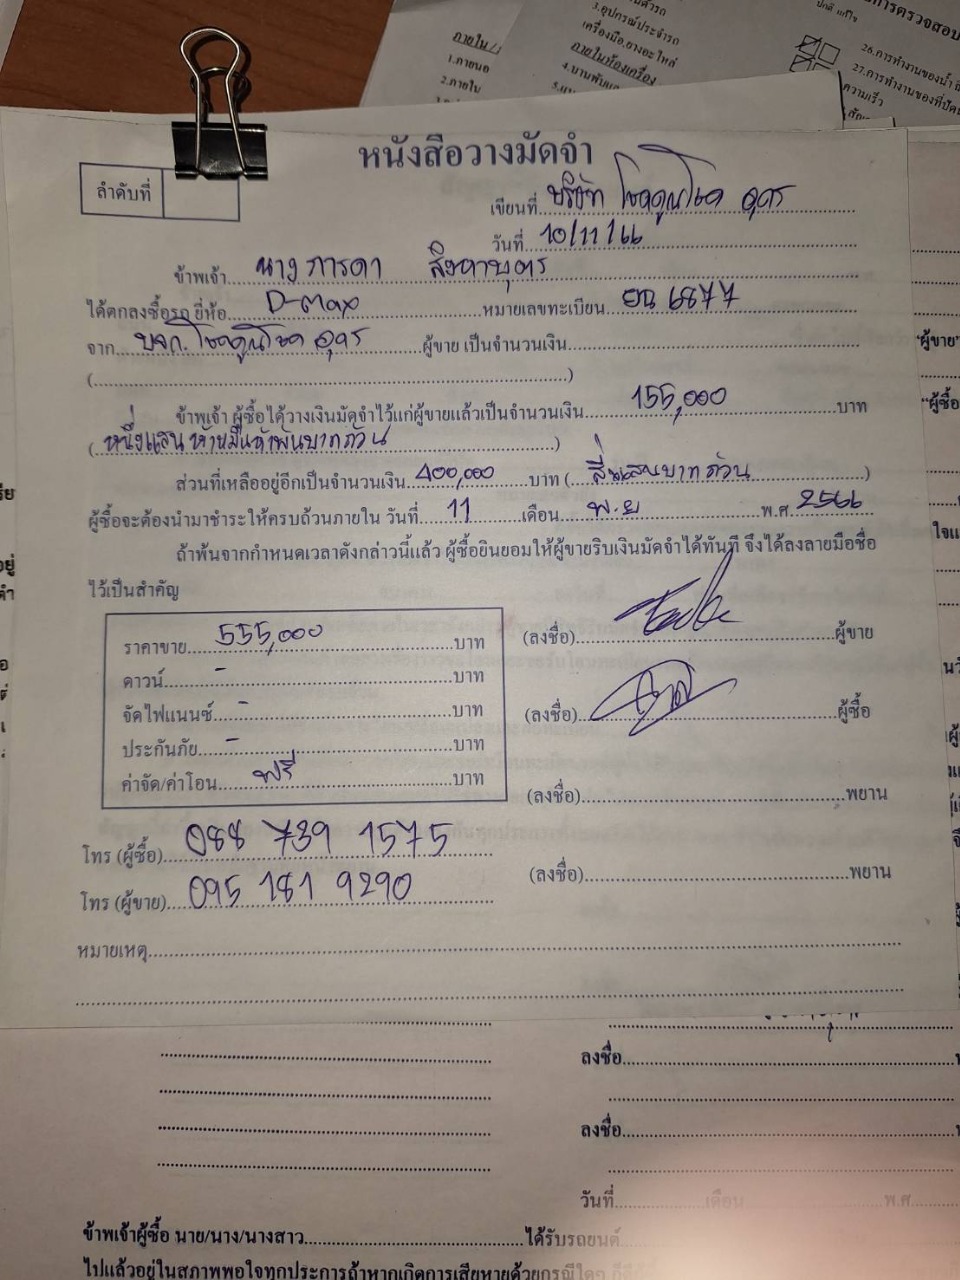 ภายใน / เ
1.ภายนอ
2.ภายใน
3.อุปกรณ์ประจำรถ
เครื่องมือ,ยางอะไหล่
ภายในห้องเครื่อง
การตรวจสอบ
ปกติ แก้ไข
26.การทำงานของน้ำ
27.การทำงานของที่ปัด
ความเร็ว
หนังสือวางมัดจำ
ลำดับที่
เขียนที่ บริษัท โชคคูณโชค อุดร
วันที่ 10/11/66
ข้าพเจ้า นาง ภารดา
ได้ตกลงซื้อรถ ยี่ห้อ D-Max หมายเลขทะเบียน 6877
จาก บจก. โชคคูณโชค อุดร ผู้ขาย เป็นจำนวนเงิน
( )
ข้าพเจ้า ผู้ซื้อได้วางเงินมัดจำไว้แก่ผู้ขายแล้วเป็นจำนวนเงิน 155,000 บาท
( หนึ่งแสนห้าหมื่นห้าพันบาทถ้วน )
ส่วนที่เหลืออยู่อีกเป็นจำนวนเงิน 400,000 บาท ( สี่แสนบาทถ้วน )
ผู้ซื้อจะต้องนำมาชำระให้ครบถ้วนภายใน วันที่ 11 เดือน พ.ย พ.ศ. 2566
ถ้าพ้นจากกำหนดเวลาดังกล่าวนี้แล้ว ผู้ซื้อยินยอมให้ผู้ขายริบเงินมัดจำได้ทันที จึงได้ลงลายมือชื่อ
ไว้เป็นสำคัญ
ราคาขาย 555,000 บาท
ดาวน์ - บาท
จัดไฟแนนซ์ - บาท
ประกันภัย - บาท
ค่าจัด/ค่าโอน ฟรี บาท
(ลงชื่อ) ผู้ขาย
(ลงชื่อ) ผู้ซื้อ
(ลงชื่อ) พยาน
(ลงชื่อ) พยาน
โทร (ผู้ซื้อ) 088 739 1575
โทร (ผู้ขาย) 095 181 9290
หมายเหตุ
"ผู้ขาย"
"ผู้ซื้อ
ลงชื่อ
ลงชื่อ
วันที่ เดือน พ.ศ.
ข้าพเจ้าผู้ซื้อ นาย/นาง/นางสาว ได้รับรถยนต์
ไปแล้วอยู่ในสภาพพอใจทุกประการถ้าหากเกิดการเสียหายด้วยกรณีใดๆ